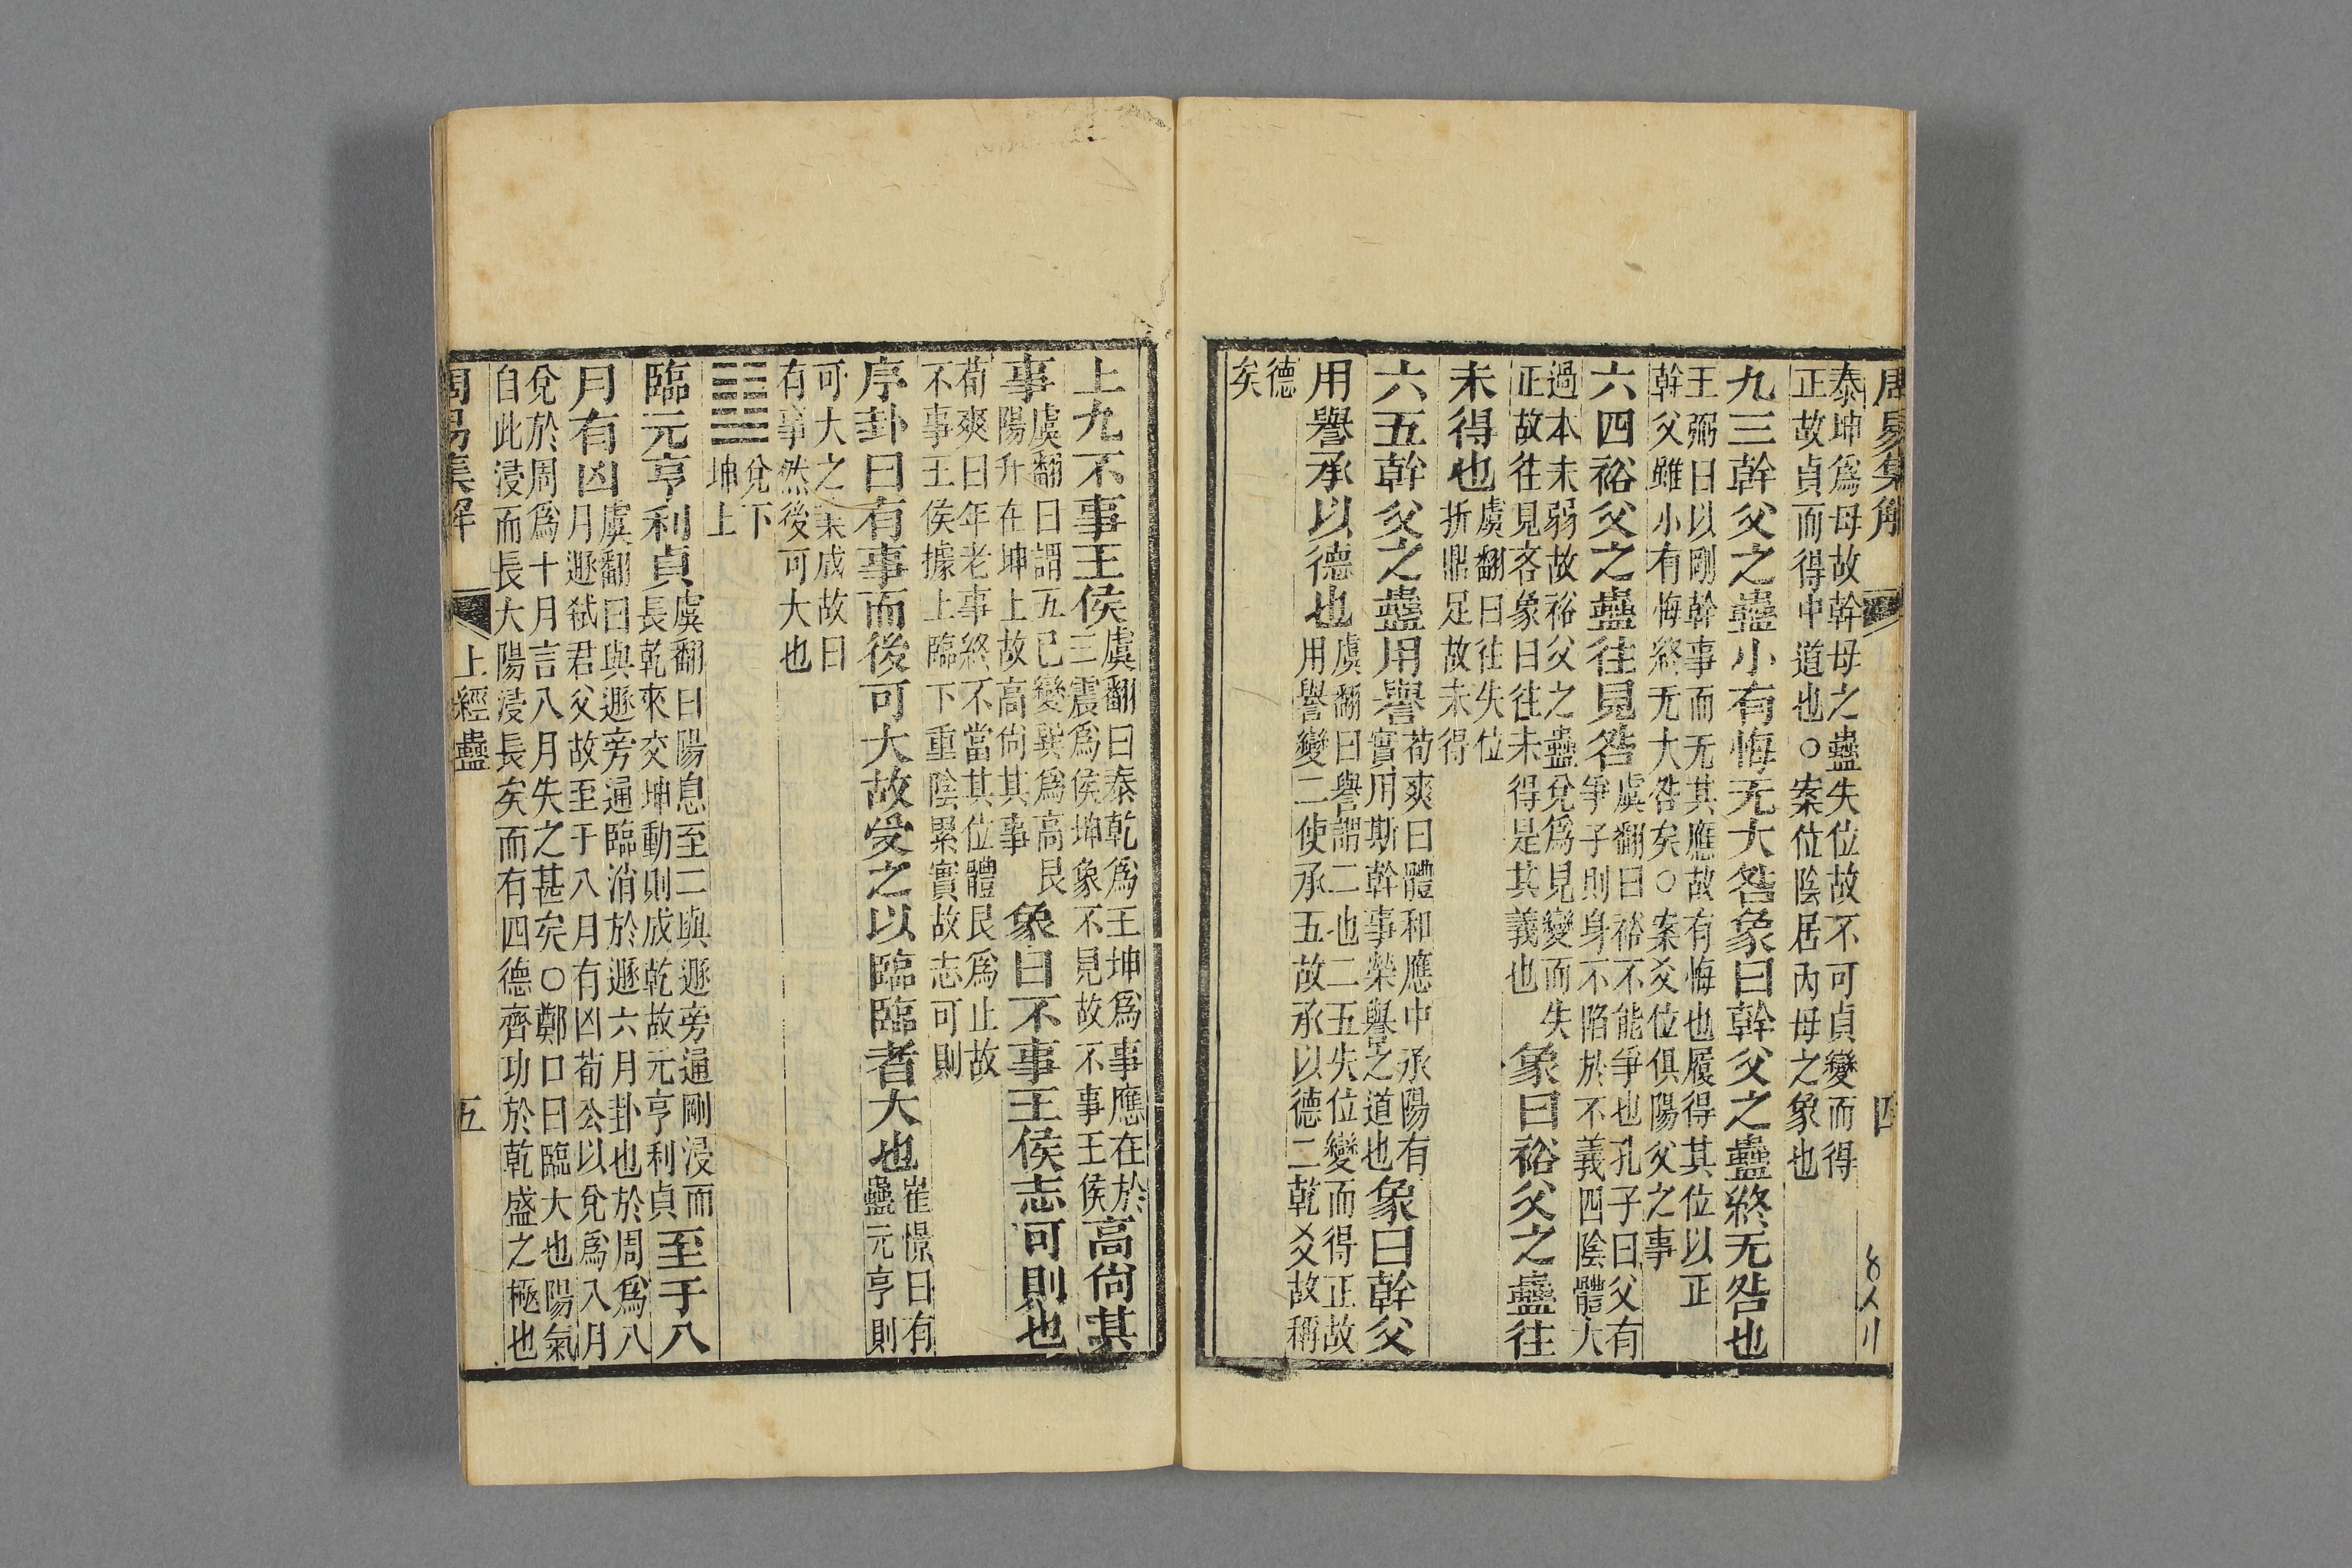 周易集解
四
泰坤爲母故幹母之蠱失位故不可貞變而得
正故貞而得中道也○案位陰居內母之象也
九三幹父之蠱小有悔无大咎象曰幹父之蠱終无咎也
王弼曰以剛幹事而无其應故有悔也履得其位以正
幹父雖小有悔終无大咎矣○案爻位俱陽父之事
六四裕父之蠱往見咎
虞翻曰裕不能爭也孔子曰父有
爭子則身不陷於不義四陰體大
過本末弱故裕父之蠱兌爲見變而失
正故往見吝象曰往未得是其義也
象曰裕父之蠱往
未得也
虞翻曰往失位
折鼎足故未得
六五幹父之蠱用譽
荀爽曰體和應中承陽有
實用斯幹事榮譽之道也
象曰幹父
用譽承以德也
虞翻曰譽謂二也二五失位變而得正故
用譽變二使承五故承以德二乾爻故稱
德
矣
上九不事王侯
虞翻曰泰乾爲王坤爲事應在於
三震爲侯坤象不見故不事王侯
高尙其
事
虞翻曰謂五已變巽爲高艮
陽升在坤上故高尙其事
象曰不事王侯志可則也
荀爽曰年老事終不當其位體艮爲止故
不事王侯據上臨下重陰累實故志可則
序卦曰有事而後可大故受之以臨臨者大也
崔憬曰有
蠱元亨則
可大之業成故曰
有事然後可大也
䷒
兌下
坤上
臨元亨利貞
虞翻曰陽息至二與遯旁通剛浸而
長乾來交坤動則成乾故元亨利貞
至于八
月有凶
虞翻曰與遯旁通臨消於遯六月卦也於周爲八
月遯弑君父故至于八月有凶荀公以兌爲八月
兌於周爲十月言八月失之甚矣○鄭口曰臨大也陽氣
自此浸而長大陽浸長矣而有四德齊功於乾盛之極也
周易集解
上經蠱
五